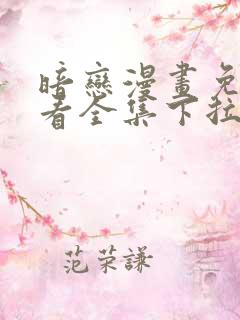 暗戀漫畫免
看全集下拉
范荣謙